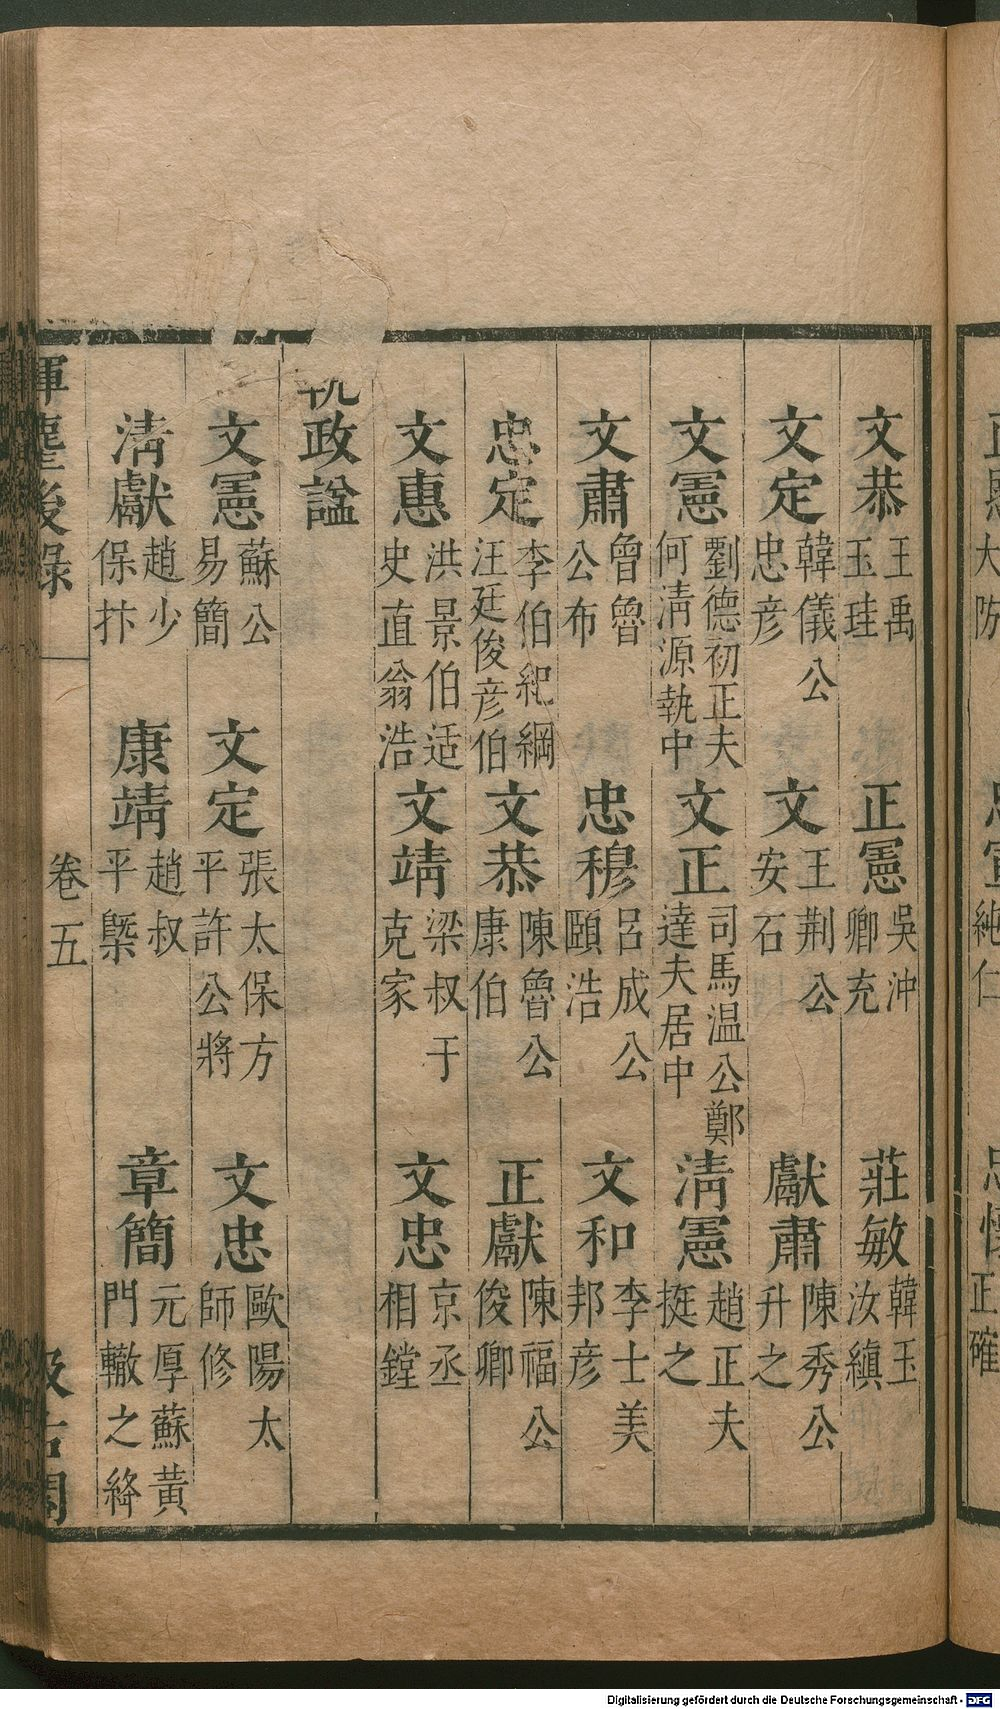 大防 純仁 正確
文恭 王禹玉珪 正憲 吳沖卿充 莊敏 韓玉汝縝
文定 韓儀公忠彥 文 王荆公安石 獻肅 陳秀公升之
文憲 劉德初正夫何淸源執中 文正 司馬温公鄭達夫居中 淸憲 趙正夫挺之
文肅 曾魯公布 忠穆 呂成公頤浩 文和 李士美邦彥
忠定 李伯紀綱汪廷俊彥伯 文恭 陳魯公康伯 正獻 陳福公俊卿
文惠 洪景伯适史直翁浩 文靖 梁叔于克家 文忠 京丞相鏜
執政諡
文憲 蘇公易簡 文定 張太保方平許公將 文忠 歐陽太師修
淸獻 趙少保抃 康靖 趙叔平槩 章簡 元厚蘇黄門轍之絳
揮麈後錄 卷五 汲古閣
Digitalisierung gefördert durch die Deutsche Forschungsgemeinschaft - DFG